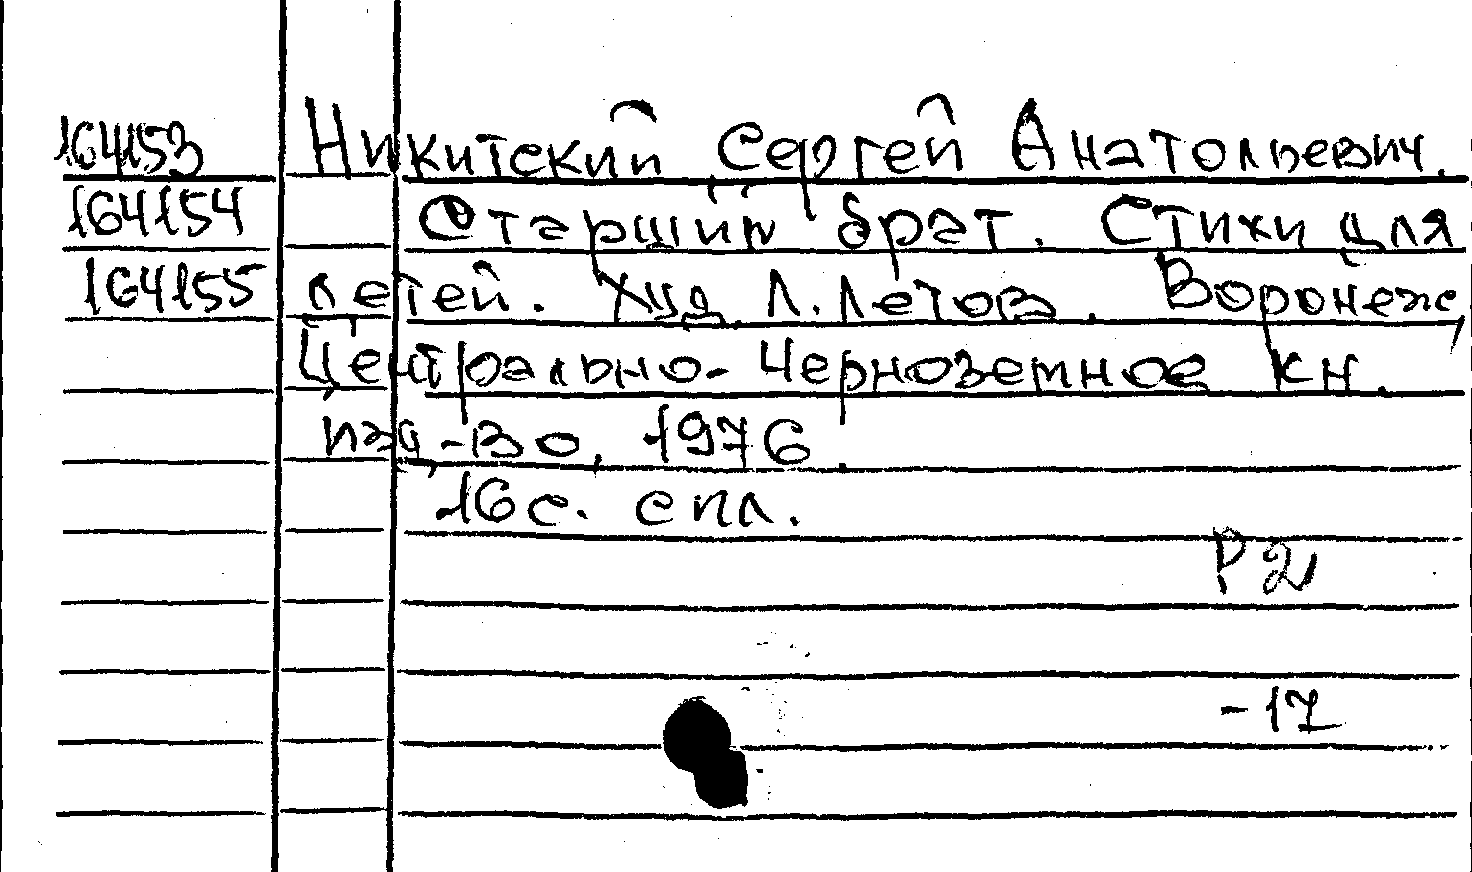 164153 Никитский Сергей Анатольевич.
164154 Старший брат. Стихи для
164155 детей. Худ. Л. Летов. Воронеж,
Центрально-Черноземное кн.
изд-во, 1976.
16 с. с ил.
Р2
-17